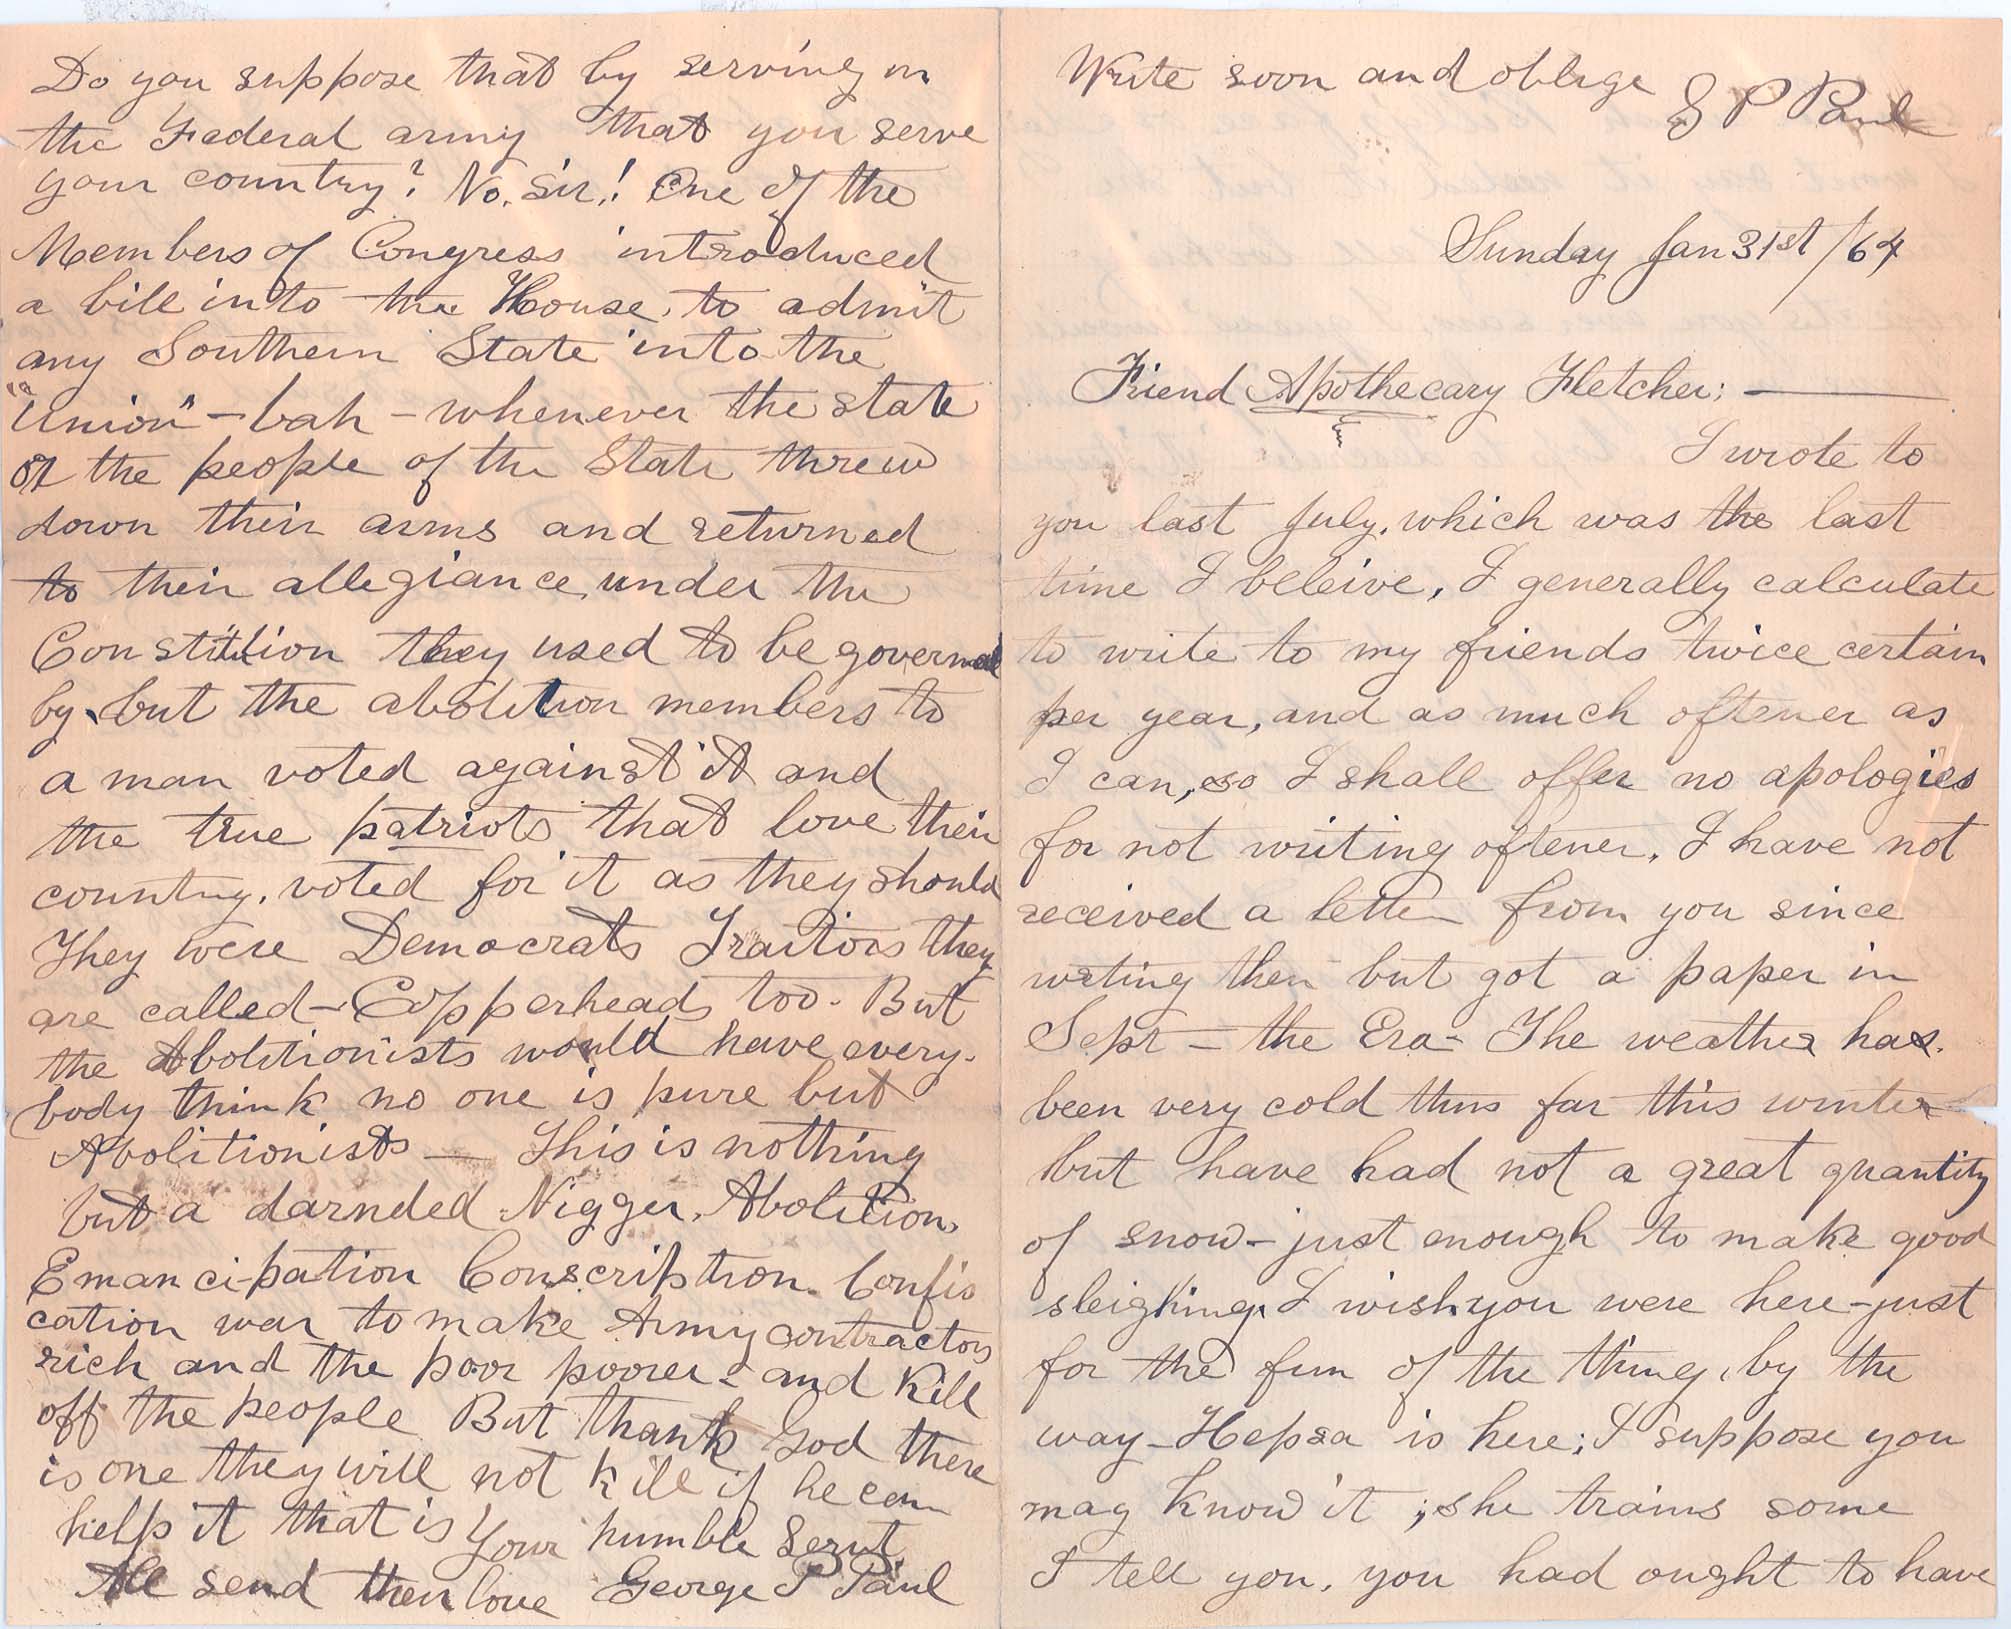 Do you suppose that by serving in
the Federal army that you serve
your country? No. Sir! One of the
Members of Congress introduced
a bill into the House, to admit
any Southern State into the
"Union" – bah – whenever the state
or the people of the State threw
down their arms and returned
to their allegiance, under the
Constitution they used to be governed
by, but the abolition members to
a man voted against it and
the true patriots that love their
country, voted for it as they should
They were Democrats Traitors they
are called – Copperheads too. But
the Abolitionists would have every-
body think no one is pure but
Abolitionists — This is nothing
but a darnded Nigger, Abolition,
Emancipation Conscription. Confis
cation war to make Army contractors
rich and the poor poorer – and kill
off the people But thank God there
is one they will not kill if he can
help it that is Your humble Servt
All send their love George P Paul
Write soon and oblige G P Paul
Sunday Jan 31st /64
Friend Apothecary Fletcher; —
I wrote to
you last July, which was the last
time I beleive, I generally calculate
to write to my friends twice certain
per year, and as much oftener as
I can, so I shall offer no apologies
for not writing oftener. I have not
received a letter from you since
writing then but got a paper in
Sept – the Era – The weather has
been very cold thus far this winter
but have had not a great quantity
of snow – just enough to make good
sleighing, I wish you were here – just
for the fun of the thing, by the
way – Hepsa is here; I suppose you
may know it ; she trains some
I tell you, you had ought to have